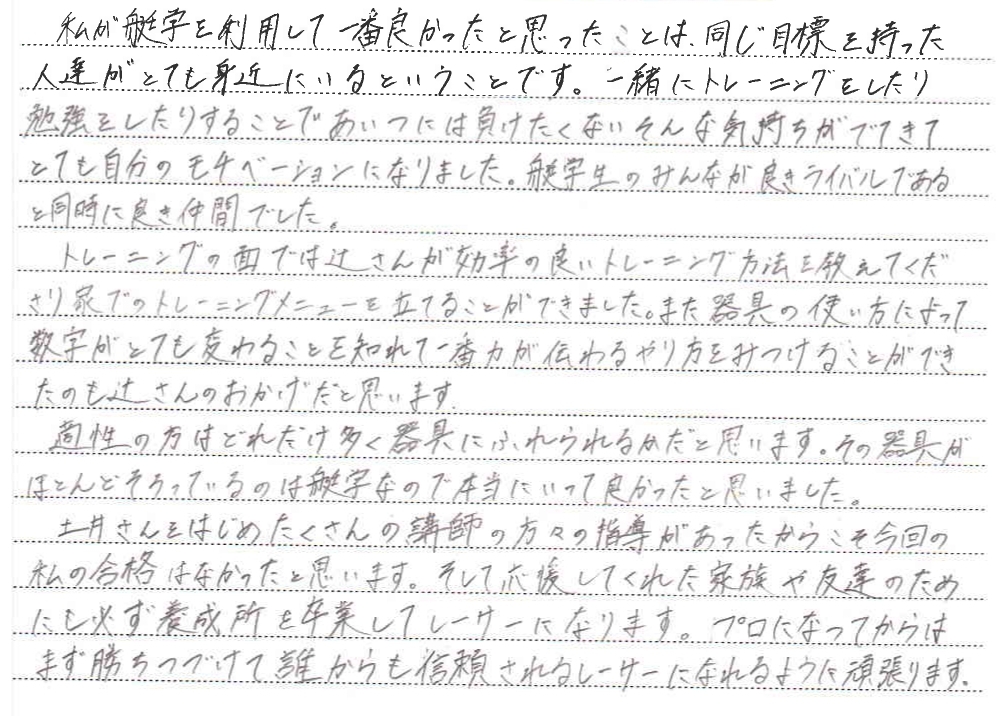 私が艇学を利用して一番良かったと思ったことは、同じ目標を持った
人達がとても身近にいるということです。一緒にトレーニングをしたり
勉強をしたりすることであいつには負けたくないそんな気持ちがでてきて
とても自分のモチベーションになりました。艇学生のみんなが良きライバルである
と同時に良き仲間でした。
トレーニングの面では辻さんが効率の良いトレーニング方法を教えてくだ
さり家でのトレーニングメニューを立てることができました。また器具の使い方によって
数字がとても変わることを知れて一番力が伝わるやり方をみつけることができ
たのも辻さんのおかげだと思います。
適性の方はどれだけ多く器具にふれられるかだと思います。その器具が
ほとんどそろっているのは艇学なので本当にいって良かったと思いました。
土井さんをはじめたくさんの講師の方々の指導があったからこそ今回の
私の合格はなかったと思います。そして応援してくれた家族や友達のため
にも必ず養成所を卒業してレーサーになります。プロになってからは
まず勝ちつづけて誰からも信頼されるレーサーになれるように頑張ります。